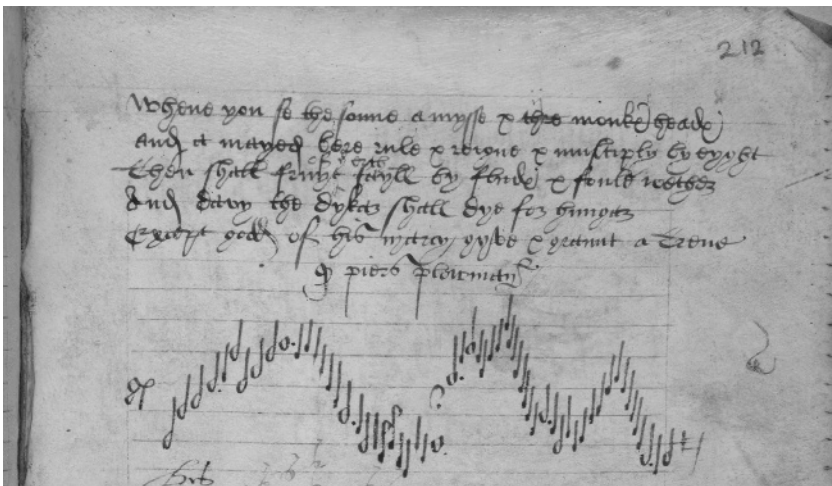 212
Whene you se the sonne amysse & thre monkes heades
and a mayed bere rule & reigne & multiply by eyght
of ye erth
Then shall fruyt fayll by fludes & foule wether
And davy the dyker shall dye for hunger
Except god of his mercy gyve & graunt a Treue
piers plowman